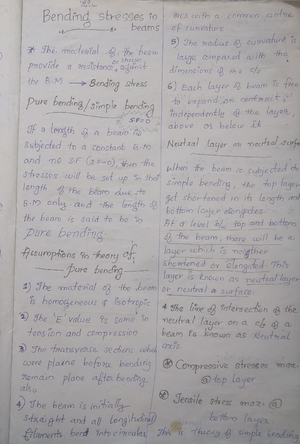 Bending stresses in
beams
* The material of the beam
provide a resistance against
the B.M → Bending stress
Pure bending/simple bending
SF=0
If a length of a beam is
subjected to a constant B.M
and no SF (=0), then the
stresses will be set up in that
length of the beam due to
B.M only and the length of
the beam is said to be in
pure bending.
Assumptions in theory of
pure bending
1) The material of the beam
is homogeneous & isotropic
2) The 'E' value is same in
tension and compression
3) The transverse sections which
were plane before bending
remain plane after bending
also.
4) The beam is initially
straight and all longitudinal
filaments bend into circular
arcs with a common centre
of curvature
5) The radius of curvature is
large compared with the
dimensions of the c/s
6) Each layer of beam is free
to expand or contract
independently of the layer
above or below it
Neutral layer or neutral surface
When the beam is subjected to
simple bending, the top layer
get shortened in its length and
bottom layer elongates.
At a level b/w top and bottom
of the beam, there will be a
layer which is neither
shortened or elongated. This
layer is known as neutral layer
or neutral surface.
* The line of intersection of the
neutral layer on a c/s of a
beam is known as neutral
axis.
* Compressive stresses max:
@ top layer
* Tensile stress max: @
bottom layer
This is theory of simple bending